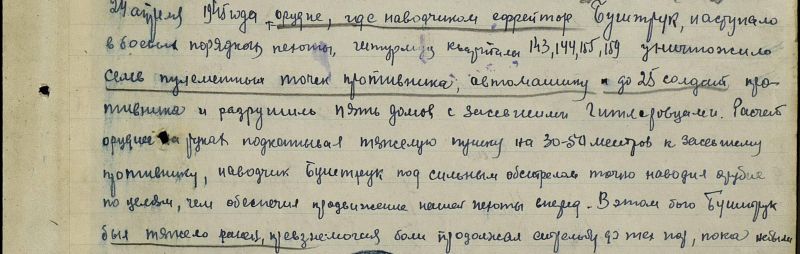 24 апреля 1945 года, орудие, где наводчиком ефрейтор Буштрук, наступало
в боевых порядках пехоты, штурмуя кварталы 143, 144, 155, 159 уничтожило
семь пулеметных точек противника, автомашину и до 25 солдат про-
тивника и разрушил пять домов с засевшими гитлеровцами. Расчет
орудие на руках подкатывал тяжелую пушку на 30-50 метров к засевшему
противнику, наводчик Буштрук под сильным обстрелом точно наводил орудие
по целям, чем обеспечил продвижение нашей пехоты вперед. В этом бою Буштрук
был тяжело ранен, превознемогая боли продолжал стрельбу до тех пор, пока небыли